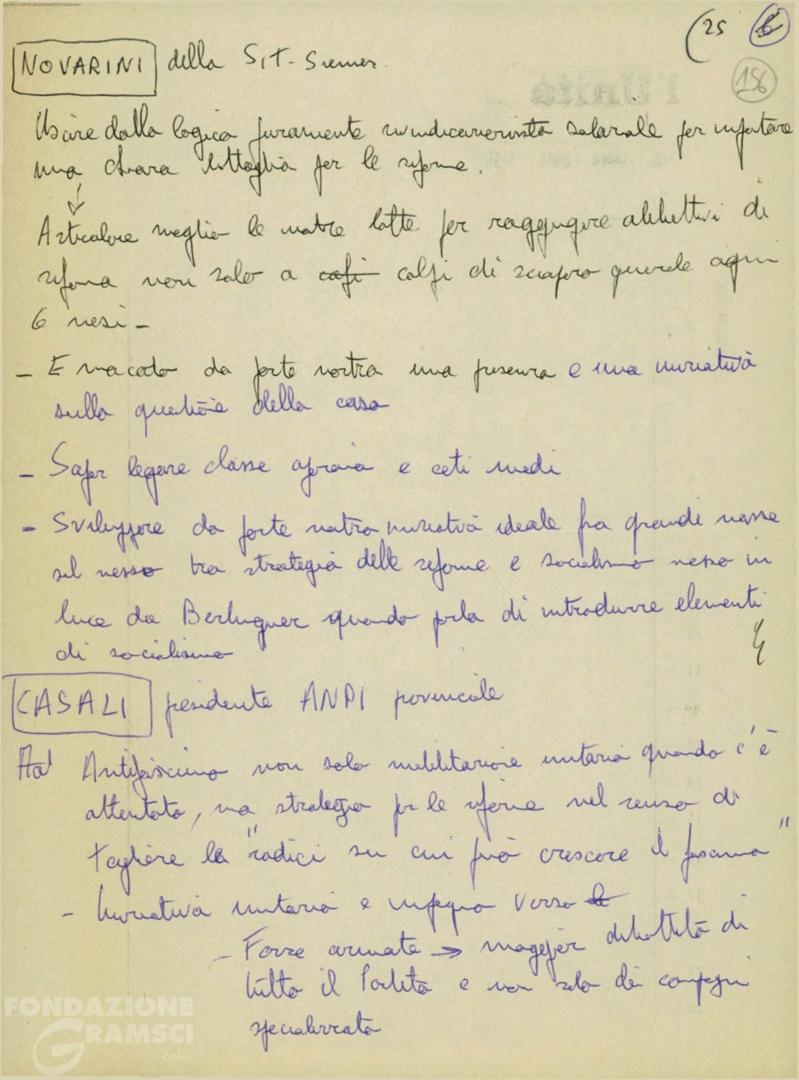 25 6
156
NOVARINI della Sit-Siemens
Uscire dalla logica puramente rivendicazionista salariale per impostare
una chiara battaglia per le riforme.
Articolare meglio le nostre lotte per raggiungere obbiettivi di
riforma non solo a capi colpi di sciopero generale ogni
6 mesi -
- È mancata da parte nostra una presenza e una iniziativa
sulla questione della casa
- Saper legare classe operaia e ceti medi
- Sviluppare da parte nostra iniziativa ideale fra grandi masse
sul nesso tra strategia delle riforme e socialismo messo in
luce da Berlinguer quando parla di introdurre elementi
di socialismo
CASALI presidente ANPI provinciale
Antifascismo non solo mobilitazione unitaria quando c'è
attentato, ma strategia per le riforme nel senso di
tagliare le "radici su cui può crescere il fascismo"
- Iniziativa unitaria e impegno verso
- Forze armate → maggior dibattito di
tutto il Partito e non solo dei compagni
specializzati
FONDAZIONE
GRAMSCI
onlus